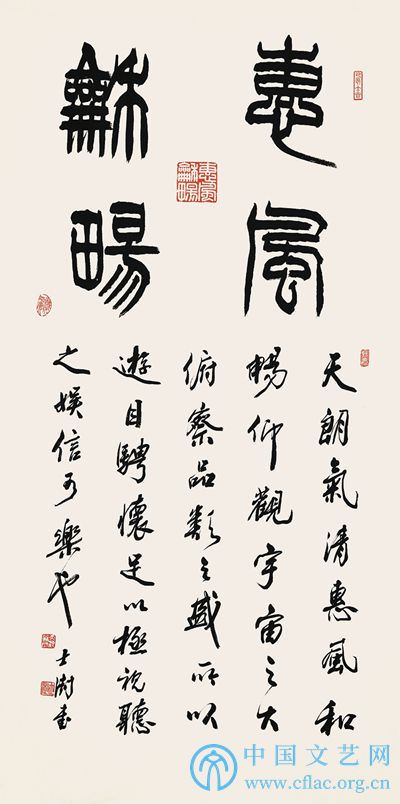 惠風
龢畼
天朗氣清惠風和
暢仰觀宇宙之大
俯察品類之盛所以
遊目騁懷足以極視聽
之娱信可樂也
士澍書
中国文艺网
www.cflac.org.cn